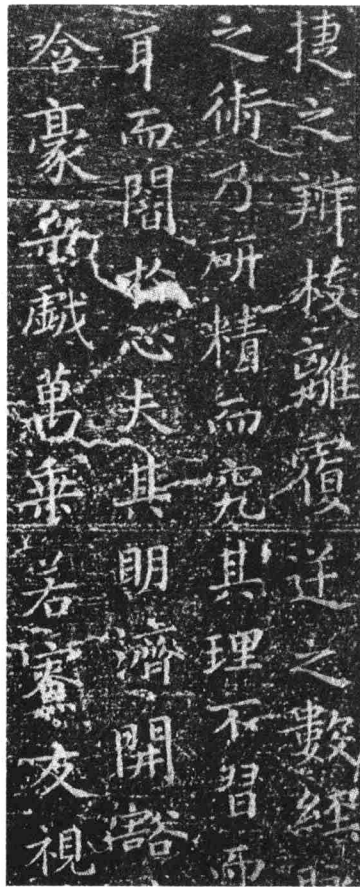 捷之辯枝離覆逆之數經
之術乃研精而究其理不習而
耳而闇扵心夫其明濟開豁
唅豪桀戱萬乗若寮友視